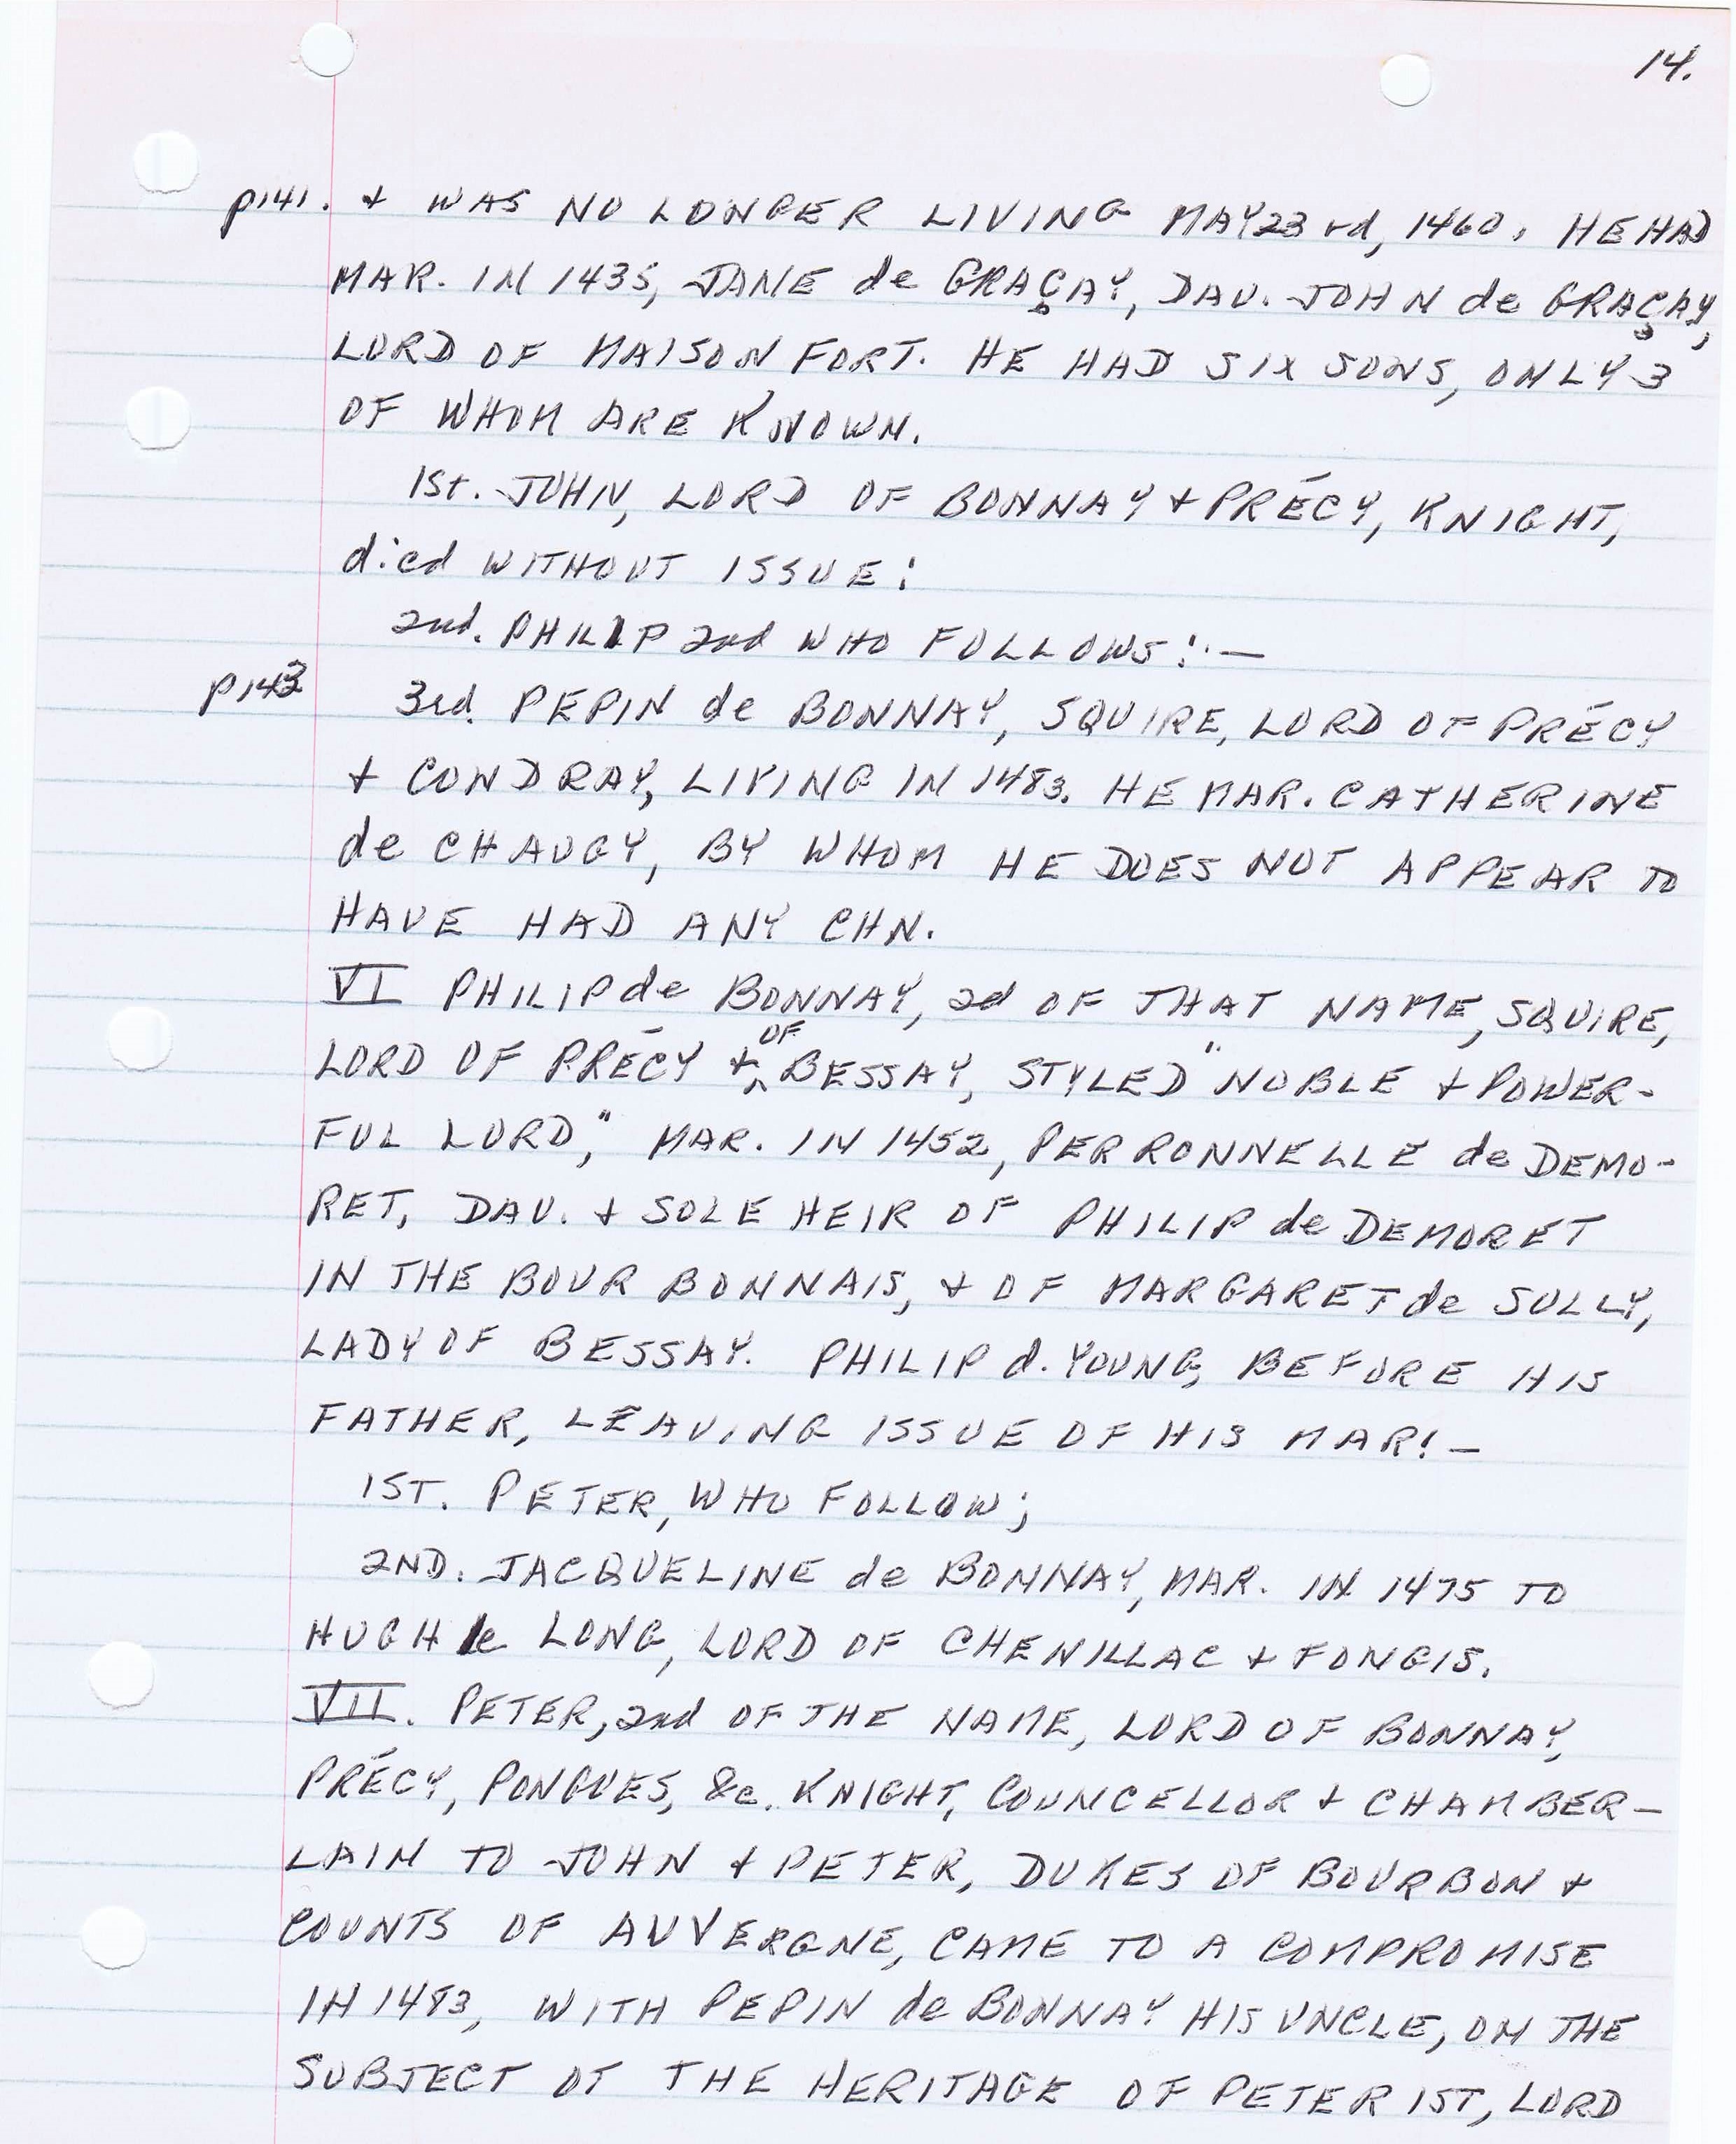 14.
p141. + WAS NO LONGER LIVING MAY 23rd, 1460. HE HAD
MAR. IN 1435, JANE de GRAÇAY, DAU. JOHN de GRAÇAY,
LORD OF MAISON FORT. HE HAD SIX SONS, ONLY 3
OF WHOM ARE KNOWN.
1st. JOHN, LORD OF BONNAY + PRÉCY, KNIGHT,
died WITHOUT ISSUE:
2nd. PHILIP 2nd WHO FOLLOWS:—
p143 3rd. PEPIN de BONNAY, SQUIRE, LORD OF PRÉCY
+ CONDRAY, LIVING IN 1483. HE MAR. CATHERINE
de CHAUGY, BY WHOM HE DOES NOT APPEAR TO
HAVE HAD ANY CHN.
VI PHILIP de BONNAY, 2d OF THAT NAME, SQUIRE,
LORD OF PRÉCY + OF BESSAY, STYLED "NOBLE + POWER-
FUL LORD," MAR. IN 1452, PERRONNELLE de DEMO-
RET, DAU. + SOLE HEIR OF PHILIP de DEMORET
IN THE BOURBONNAIS, + OF MARGARET de SULLY,
LADY OF BESSAY. PHILIP d. YOUNG, BEFORE HIS
FATHER, LEAVING ISSUE OF HIS MAR:—
1ST. PETER, WHO FOLLOW;
2ND. JACQUELINE de BONNAY, MAR. IN 1475 TO
HUGH le LONG, LORD OF CHENILLAC + FONGIS.
VII. PETER, 2nd OF THE NAME, LORD OF BONNAY,
PRÉCY, PONGUES, &c. KNIGHT, COUNCELLOR + CHAMBER-
LAIN TO JOHN + PETER, DUKES OF BOURBON +
COUNTS OF AUVERGNE, CAME TO A COMPROMISE
IN 1483, WITH PEPIN de BONNAY HIS UNCLE, ON THE
SUBJECT OT THE HERITAGE OF PETER 1ST, LORD